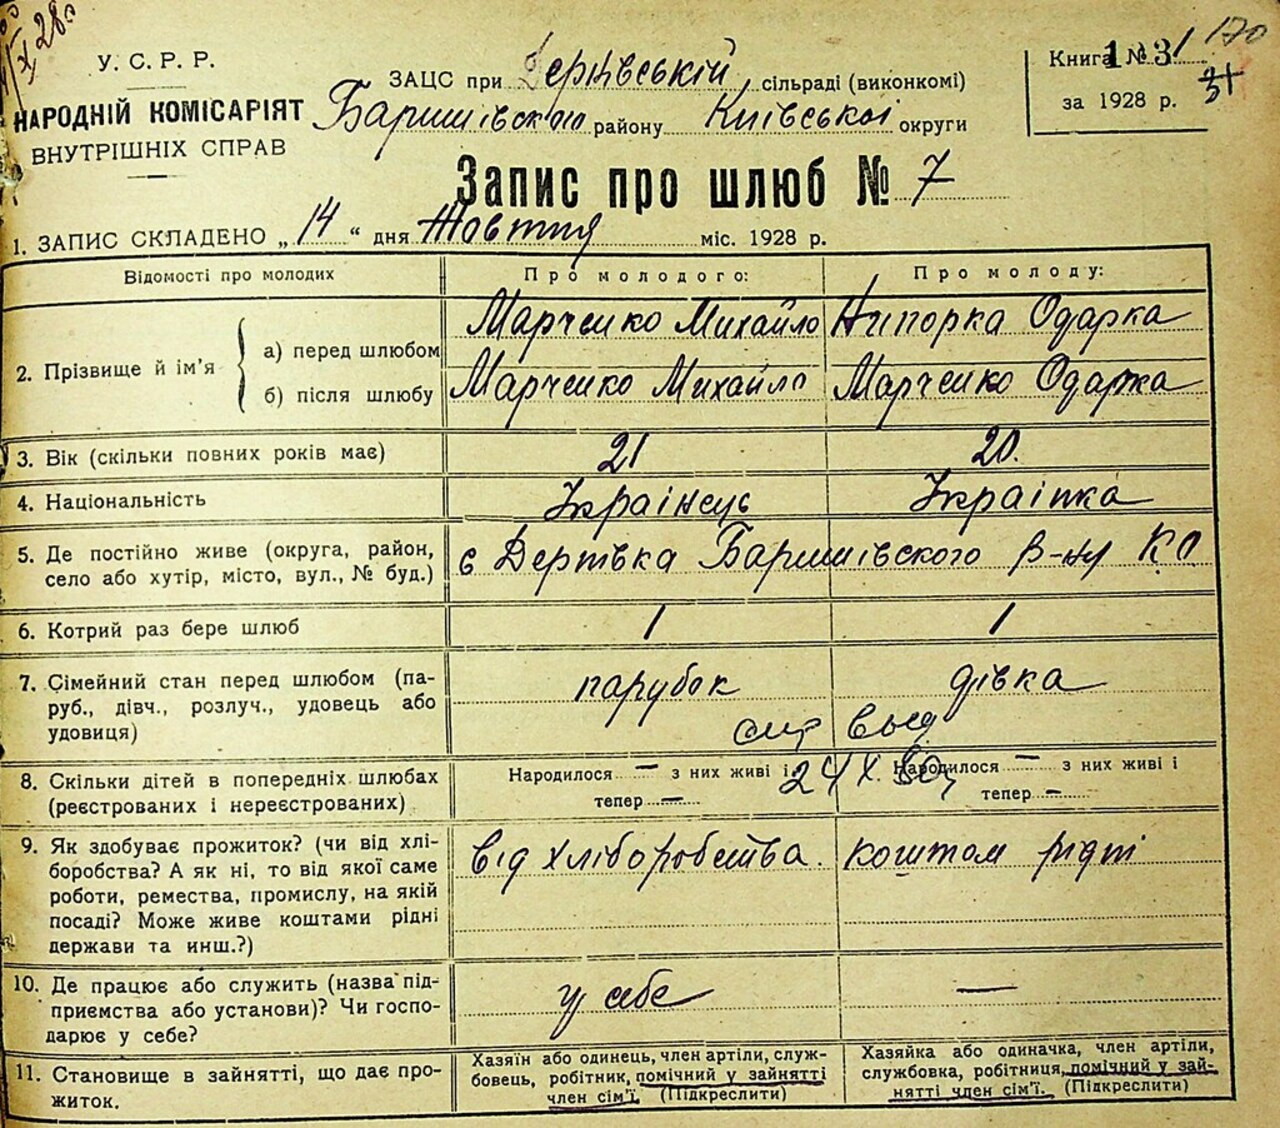 У. С. Р. Р.
НАРОДНІЙ КОМІСАРІЯТ
ВНУТРІШНІХ СПРАВ
ЗАЦС при сільраді (виконкомі)
Баришівського району Київської округи
Книга № 31 170
за 1928 р. 31
Запис про шлюб № 7
1. ЗАПИС СКЛАДЕНО „ 14 “ дня Жовтня міс. 1928 р.
Відомості про молодих
Про молодого:
Про молоду:
2. Прізвище й ім’я
а) перед шлюбом
Марченко Михайло
Нипорка Одарка
б) після шлюбу
Марченко Михайло
Марченко Одарка
3. Вік (скільки повних років має)
21
20.
4. Національність
Українець
Українка
5. Де постійно живе (округа, район,
село або хутір, місто, вул., № буд.)
с Дертівка Баришівського р-ну К О
6. Котрий раз бере шлюб
1
1
7. Сімейний стан перед шлюбом (па-
руб., дівч., розлуч., удовець або
удовиця)
парубок
дівка
24 X.
8. Скільки дітей в попередніх шлюбах
(реєстрованих і нереєстрованих)
Народилося — з них живі і
тепер —
Народилося — з них живі і
тепер —
9. Як здобуває прожиток? (чи від хлі-
боробства? А як ні, то від якої саме
роботи, ремества, промислу, на якій
посаді? Може живе коштами рідні
держави та инш.?)
від хліборобства.
коштом рідні
10. Де працює або служить (назва під-
приємства або установи)? Чи госпо-
дарює у себе?
у себе
—
11. Становище в зайнятті, що дає про-
житок.
Хазяїн або одинець, член артіли, служ-
бовець, робітник, помічний у зайнятті
член сім’ї. (Підкреслити)
Хазяйка або одиначка, член артіли,
службовка, робітниця, помічний у зай-
нятті член сім’ї. (Підкреслити)